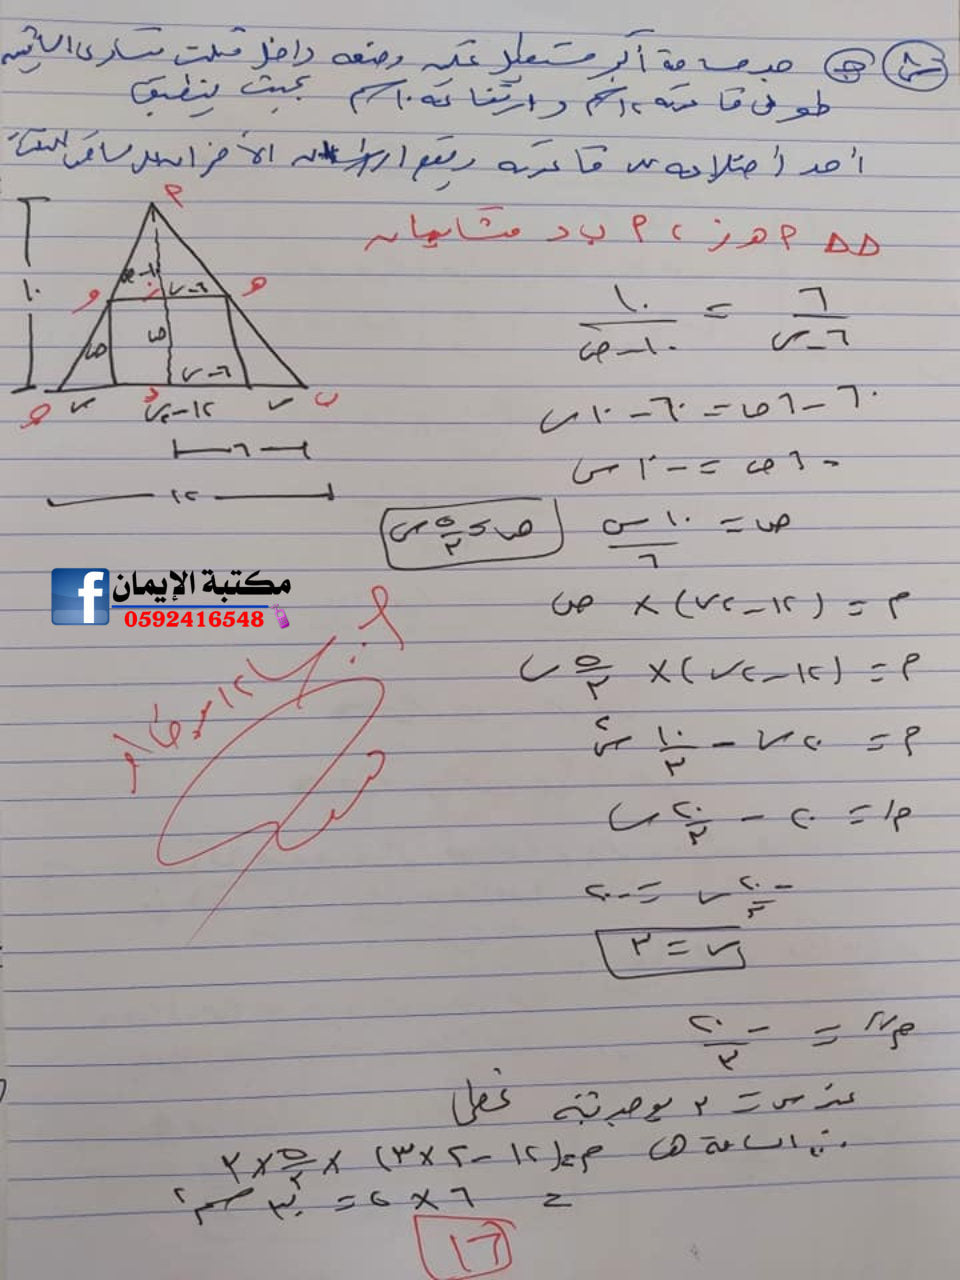 جد مساحة أكبر مستطيل يمكن وضعه داخل مثلث متساوي الساقين
طول قاعدته ١٢سم وارتفاعه ١٠سم بحيث ينطبق
أحد أضلاعه على قاعدته ويقع الرأسان الآخران على ساقي المثلث
△△ م هـ ز ، م ب د متشابهان
٦ / ٦-س = ١٠ / ١٠-ص
٦٠-٦ص = ٦٠-١٠س
-٦ص = -١٠س
ص = ١٠س / ٦
ص = ٥/٣ س
م = (١٢-٢س) × ص
م = (١٢-٢س) × ٥/٣ س
م = ٢٠س - ١٠/٣ س٢
م/ = ٢٠ - ٢٠/٣ س
-٢٠/٣ س = -٢٠
س = ٣
م// = -٢٠/٣
عند س = ٣ يوجد قيمة عظمى
∴ المساحة هي م = (١٢ - ٢×٣) × ٥/٣ × ٣
= ٦ × ٥ = ٣٠ سم٢
١٦
م
١٠
١٠-ص
و
ز
٦-س
هـ
ص
ص
٦-س
س
د
١٢-٢س
س
ب
٦
١٢
مكتبة الإيمان
0592416548